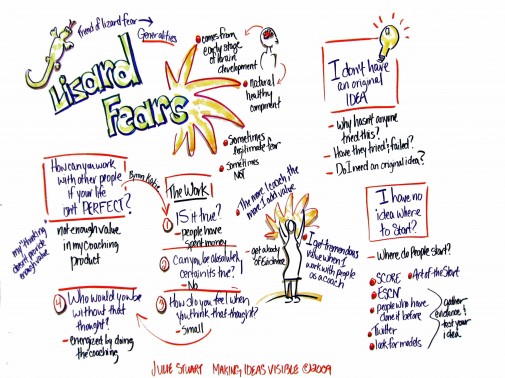 Friend of lizard fear →
Generalities
Lizard
Fears
• comes from
early stage
of brain
development
• natural
healthy
component
• Sometimes
legitimate fear
• sometimes
NOT
I don't have
an original
IDEA
- Why hasn't anyone
tried this?
- Have they tried & failed?
- Do I need an original idea?
How can you work
with other people
if your life
isn't PERFECT?
Byron Katie
not enough value
in my coaching
product
my
doesn't provide
enough value
The Work
1 IS it true?
- people have
spent money
2 Can you be absolutely
certain it's true?
- No
3 How do you feel when
you think that thought?
- Small
4 Who would you be
without that
thought?
- energized by doing
the coaching
• The more I coach, the
more I add value
get a body
of evidence
• I get tremendous
value when I
work with people
as a coach
I have no
idea where
to Start?
- Where do People start?
• SCORE
• Art of the Start
•
• people who have
done it before
• Twitter
• look for models
gather
evidence &
test your
idea
JULIE STUART MAKING IDEAS VISIBLE ©2009